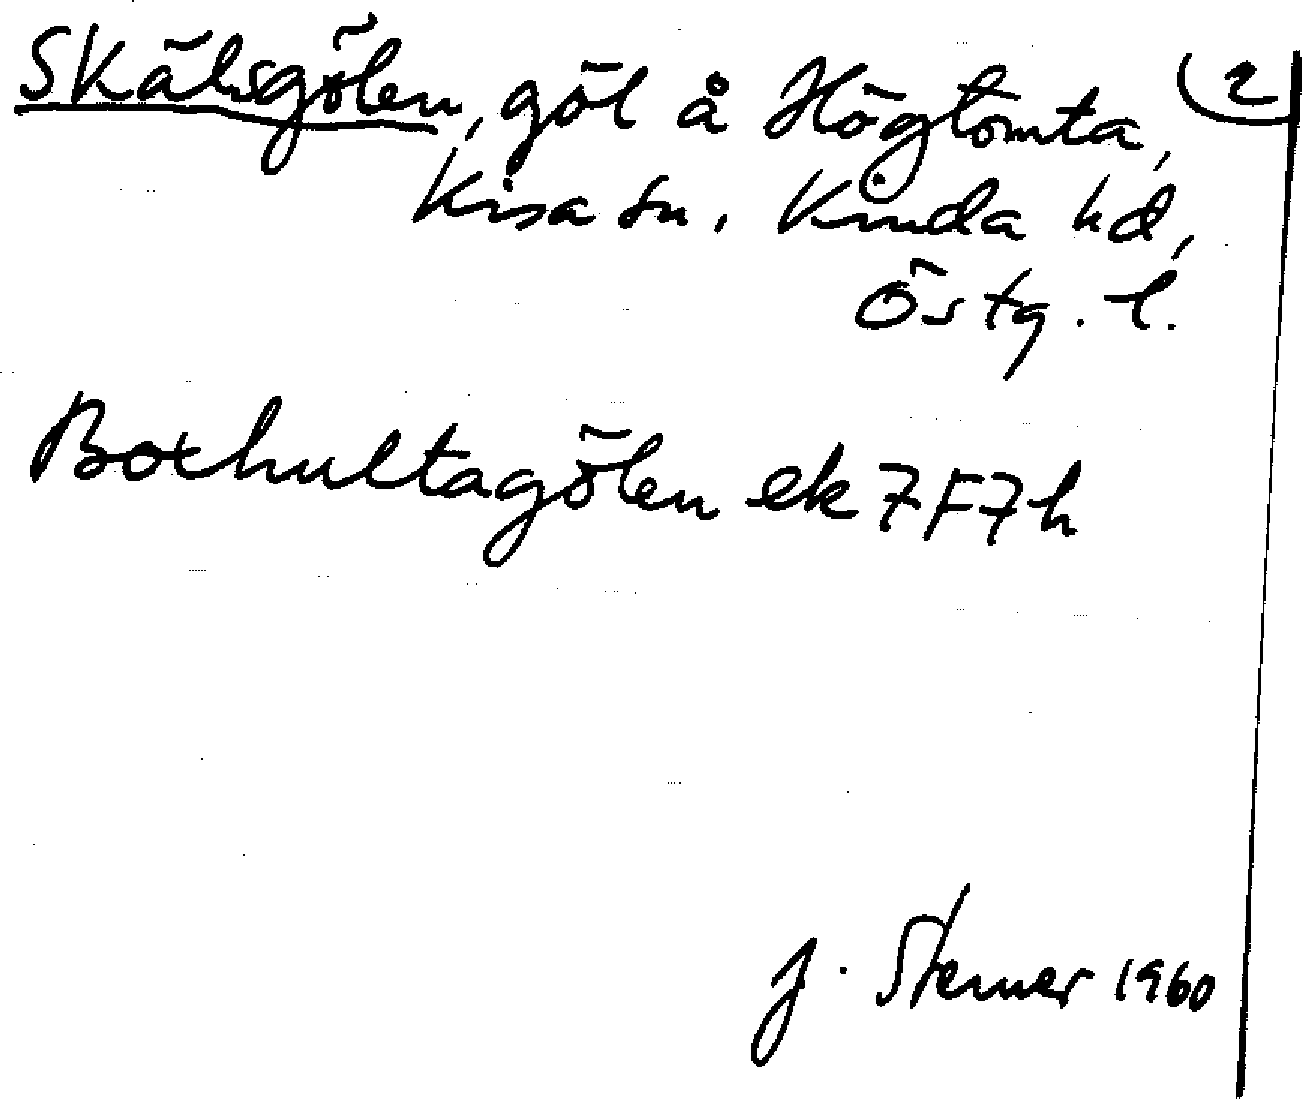 Skälsgölen, göl å Högtomta, 2
Kisa sn, Kinda hd,
Östg. l.
Boxhultagölen ek 7F7h
J. Sterner 1960